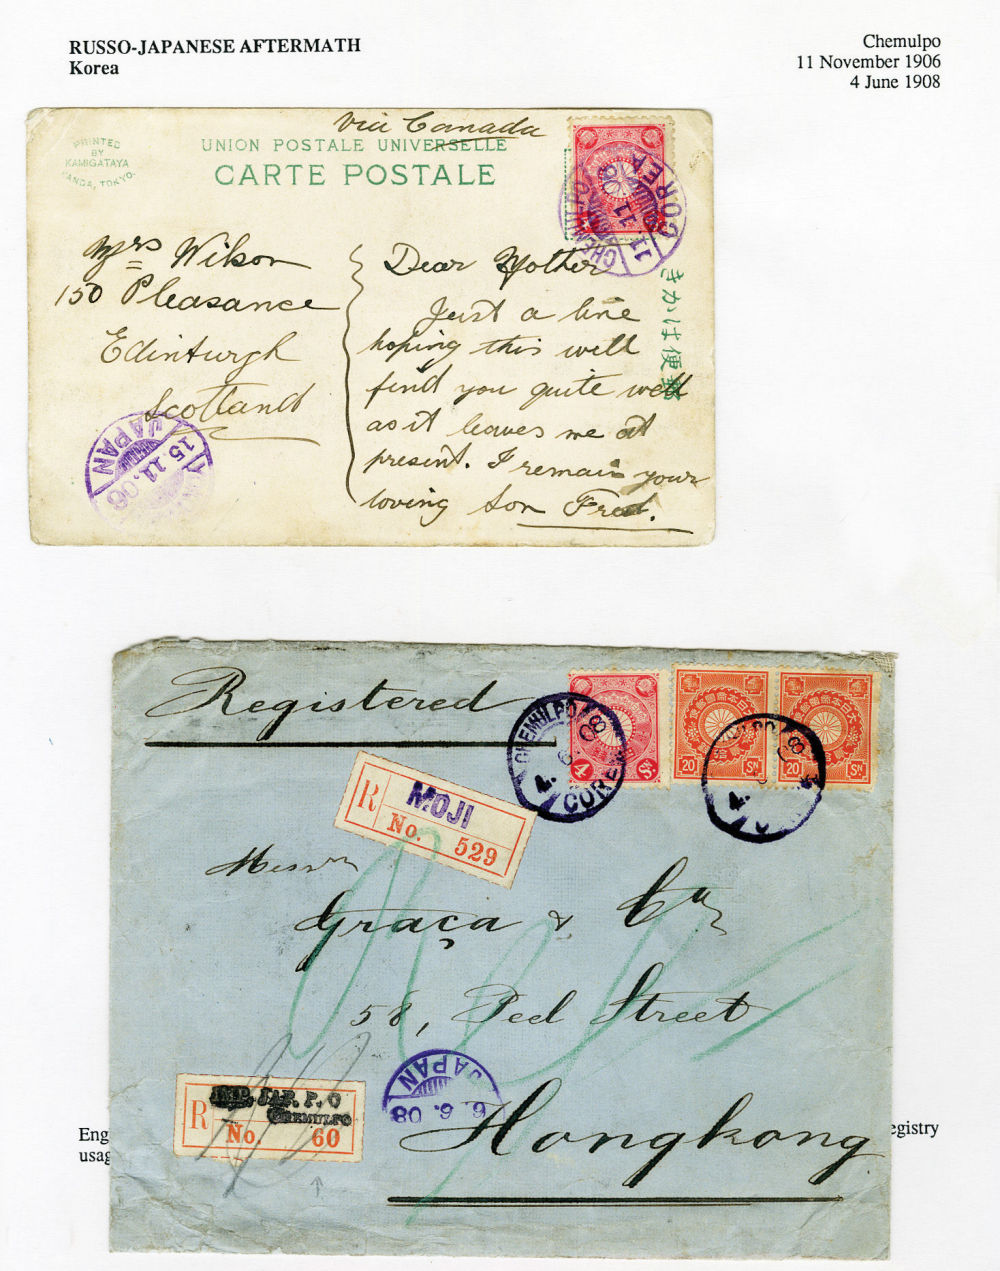 RUSSO-JAPANESE AFTERMATH
Korea
Chemulpo
11 November 1906
4 June 1908
via Canada
PRINTED
BY
KAMIGATAYA
KANDA, TOKYO.
UNION POSTALE UNIVERSELLE
CARTE POSTALE
CHEMULPO
11.11.06
COREA
きかは便郵
Mrs Wilson
150 Pleasance
Edinburgh
Scotland
Dear Mother
Just a line
hoping this will
find you quite well
as it leaves me at
present. I remain your
loving Son Fred.
JAPAN
15.11.06
Registered
CHEMULPO
4.6.08
COREA
4 Sn
大日本帝國郵便
20 Sn
大日本帝國郵便
20 Sn
R MOJI
No. 529
Messrs
Graça & Co
58, Peel Street
Hongkong
JAPAN
6.6.08
R IMP. JAP. P. O
CHEMULPO
No. 60
Eng
egistry
usag